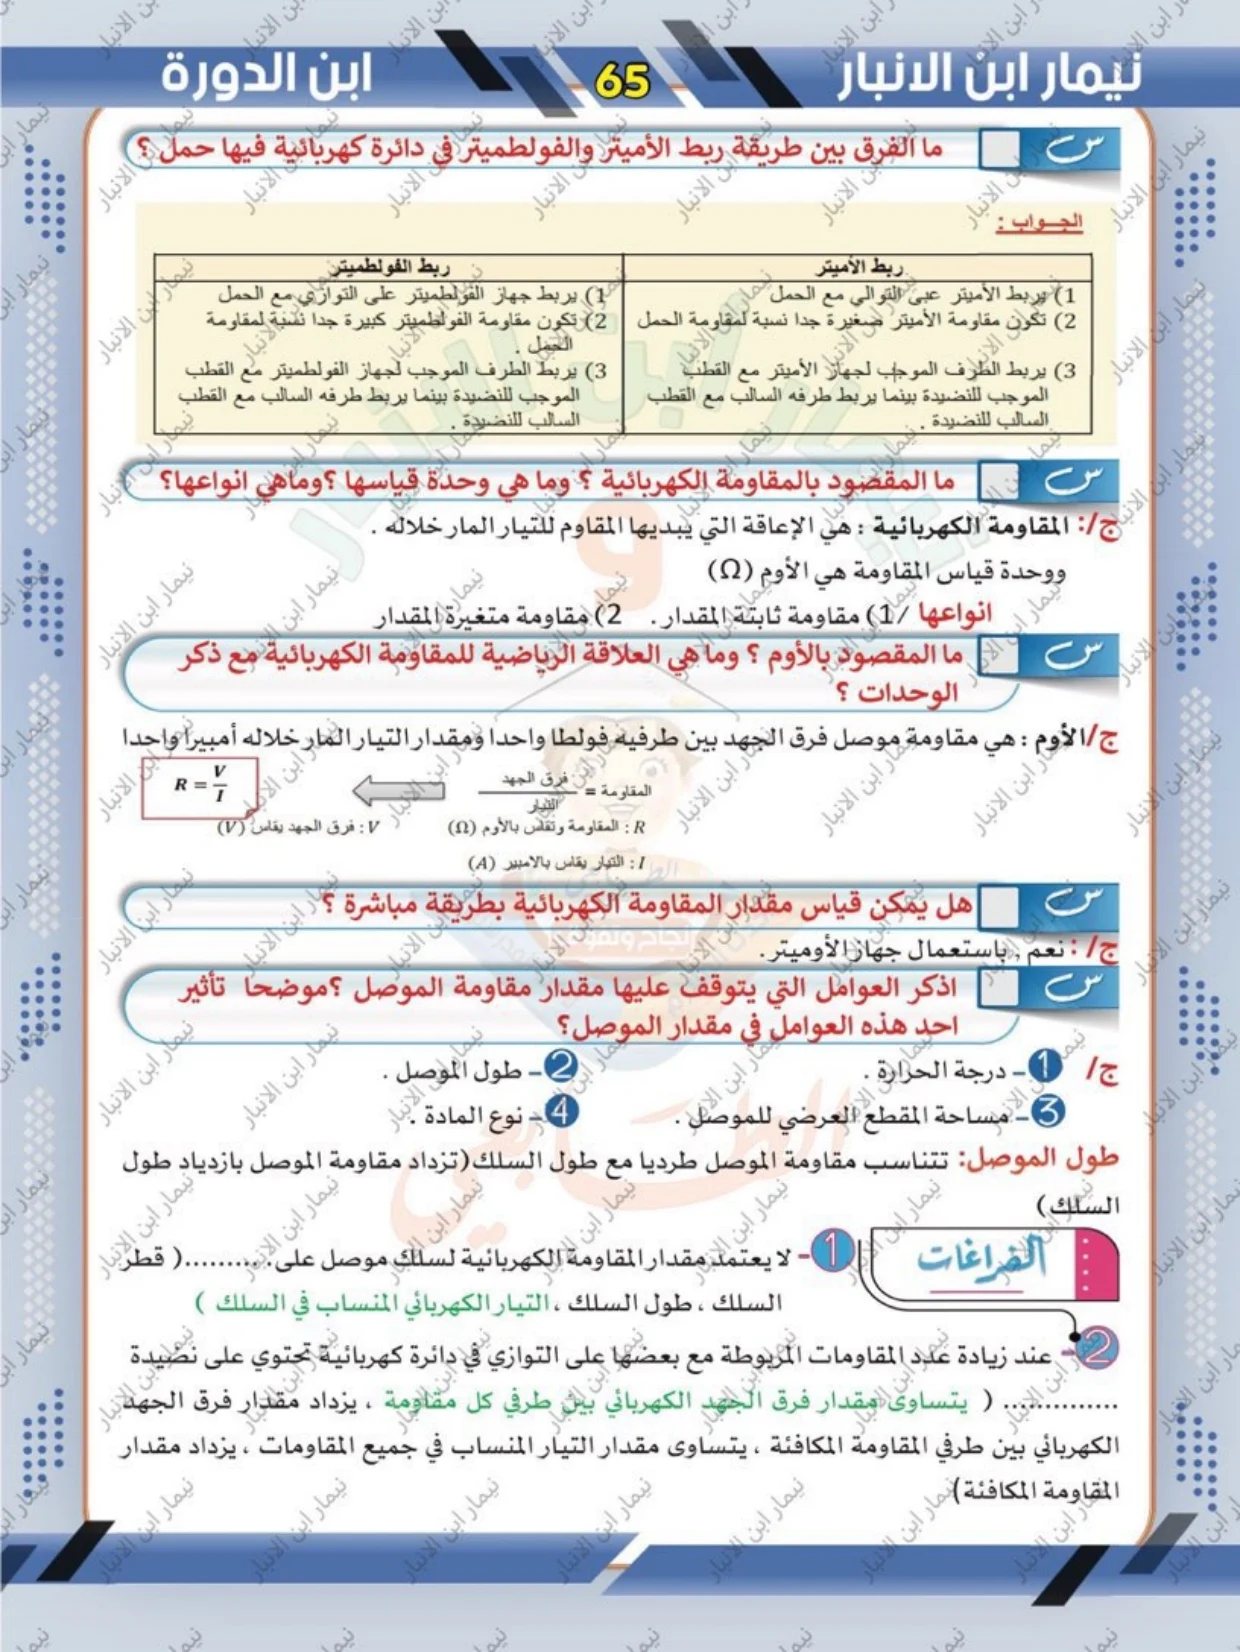 نيمار ابن الانبار
65
ابن الدورة
س ما الفرق بين طريقة ربط الأميتر والفولطميتر في دائرة كهربائية فيها حمل ؟
الجـــواب :
ربط الأميتر
1) يربط الأميتر عبى التوالي مع الحمل
2) تكون مقاومة الأميتر صغيرة جدا نسبة لمقاومة الحمل
3) يربط الطرف الموجب لجهاز الأميتر مع القطب
الموجب للنضيدة بينما يربط طرفه السالب مع القطب
السالب للنضيدة .
ربط الفولطميتر
1) يربط جهاز الفولطميتر على التوازي مع الحمل
2) تكون مقاومة الفولطميتر كبيرة جدا نسبة لمقاومة
الحمل .
3) يربط الطرف الموجب لجهاز الفولطميتر مع القطب
الموجب للنضيدة بينما يربط طرفه السالب مع القطب
السالب للنضيدة .
س ما المقصود بالمقاومة الكهربائية ؟ وما هي وحدة قياسها ؟وماهي انواعها؟
ج/: المقاومة الكهربائية : هي الإعاقة التي يبديها المقاوم للتيار المار خلاله .
ووحدة قياس المقاومة هي الأوم (Ω)
انواعها /1) مقاومة ثابتة المقدار . 2) مقاومة متغيرة المقدار
س ما المقصود بالأوم ؟ وما هي العلاقة الرياضية للمقاومة الكهربائية مع ذكر
الوحدات ؟
ج/الأوم : هي مقاومة موصل فرق الجهد بين طرفيه فولطا واحدا ومقدار التيار المار خلاله أمبيرا واحدا
المقاومة = فرق الجهد / التيار
R = V / I
R : المقاومة وتقاس بالأوم (Ω) V : فرق الجهد يقاس (V)
I : التيار يقاس بالامبير (A)
س هل يمكن قياس مقدار المقاومة الكهربائية بطريقة مباشرة ؟
ج/ : نعم , باستعمال جهاز الأوميتر .
س اذكر العوامل التي يتوقف عليها مقدار مقاومة الموصل ؟موضحا تأثير
احد هذه العوامل في مقدار الموصل؟
ج/ 1- درجة الحرارة . 2- طول الموصل .
3- مساحة المقطع العرضي للموصل . 4- نوع المادة .
طول الموصل: تتناسب مقاومة الموصل طرديا مع طول السلك(تزداد مقاومة الموصل بازدياد طول
السلك)
الفراغات
1- لا يعتمد مقدار المقاومة الكهربائية لسلك موصل على...........( قطر
السلك ، طول السلك ، التيار الكهربائي المنساب في السلك )
2- عند زيادة عدد المقاومات المربوطة مع بعضها على التوازي في دائرة كهربائية تحتوي على نضيدة
.............. ( يتساوى مقدار فرق الجهد الكهربائي بين طرفي كل مقاومة ، يزداد مقدار فرق الجهد
الكهربائي بين طرفي المقاومة المكافئة ، يتساوى مقدار التيار المنساب في جميع المقاومات ، يزداد مقدار
المقاومة المكافئة)